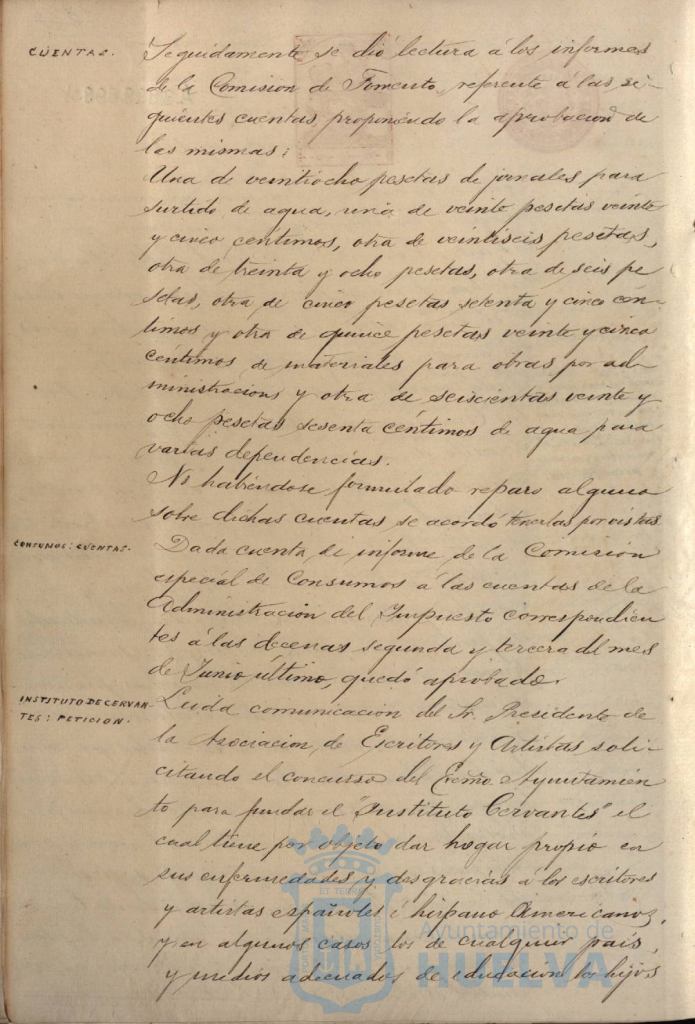 CUENTAS.
Seguidamente se dió lectura á los informes
de la Comision de Fomento, referente á las si-
guientes cuentas proponiendo la aprobacion de
las mismas:
Una de veintiocho pesetas de jornales para
surtido de agua, una de veinte pesetas veinte
y cinco centimos, otra de veintiseis pesetas,
otra de treinta y ocho pesetas, otra de seis pe
setas, otra de cinco pesetas setenta y cinco cén-
timos y otra de quince pesetas veinte y cinco
céntimos de materiales para obras por ad-
ministracion, y otra de seiscientas veinte y
ocho pesetas sesenta céntimos de agua para
varias dependencias.
No habiéndose formulado reparo alguno
sobre dichas cuentas se acordó tenerlas por vistas
CONSUMOS: CUENTAS.
Dada cuenta de informe de la Comisión
especial de Consumos á las cuentas de la
Administracion del Impuesto correspondien
tes á las decenas segunda y tercera del mes
de Junio último, quedó aprobado.
INSTITUTO DE CERVAN-
TES: PETICION.
Leida comunicacion del Sr. Presidente de
la Asociacion de Escritores y Artistas, soli-
citando el concurso del Excmo. Ayuntamien
to para fundar el "Instituto Cervantes" el
cual tiene por objeto dar hogar propio en
sus enfermedades y desgracias á los escritores
y artistas españoles é hispano Americanos,
y en algunos casos los de cualquier pais,
y medios adecuados de educacion los hijos
Ayuntamiento de
HUELVA